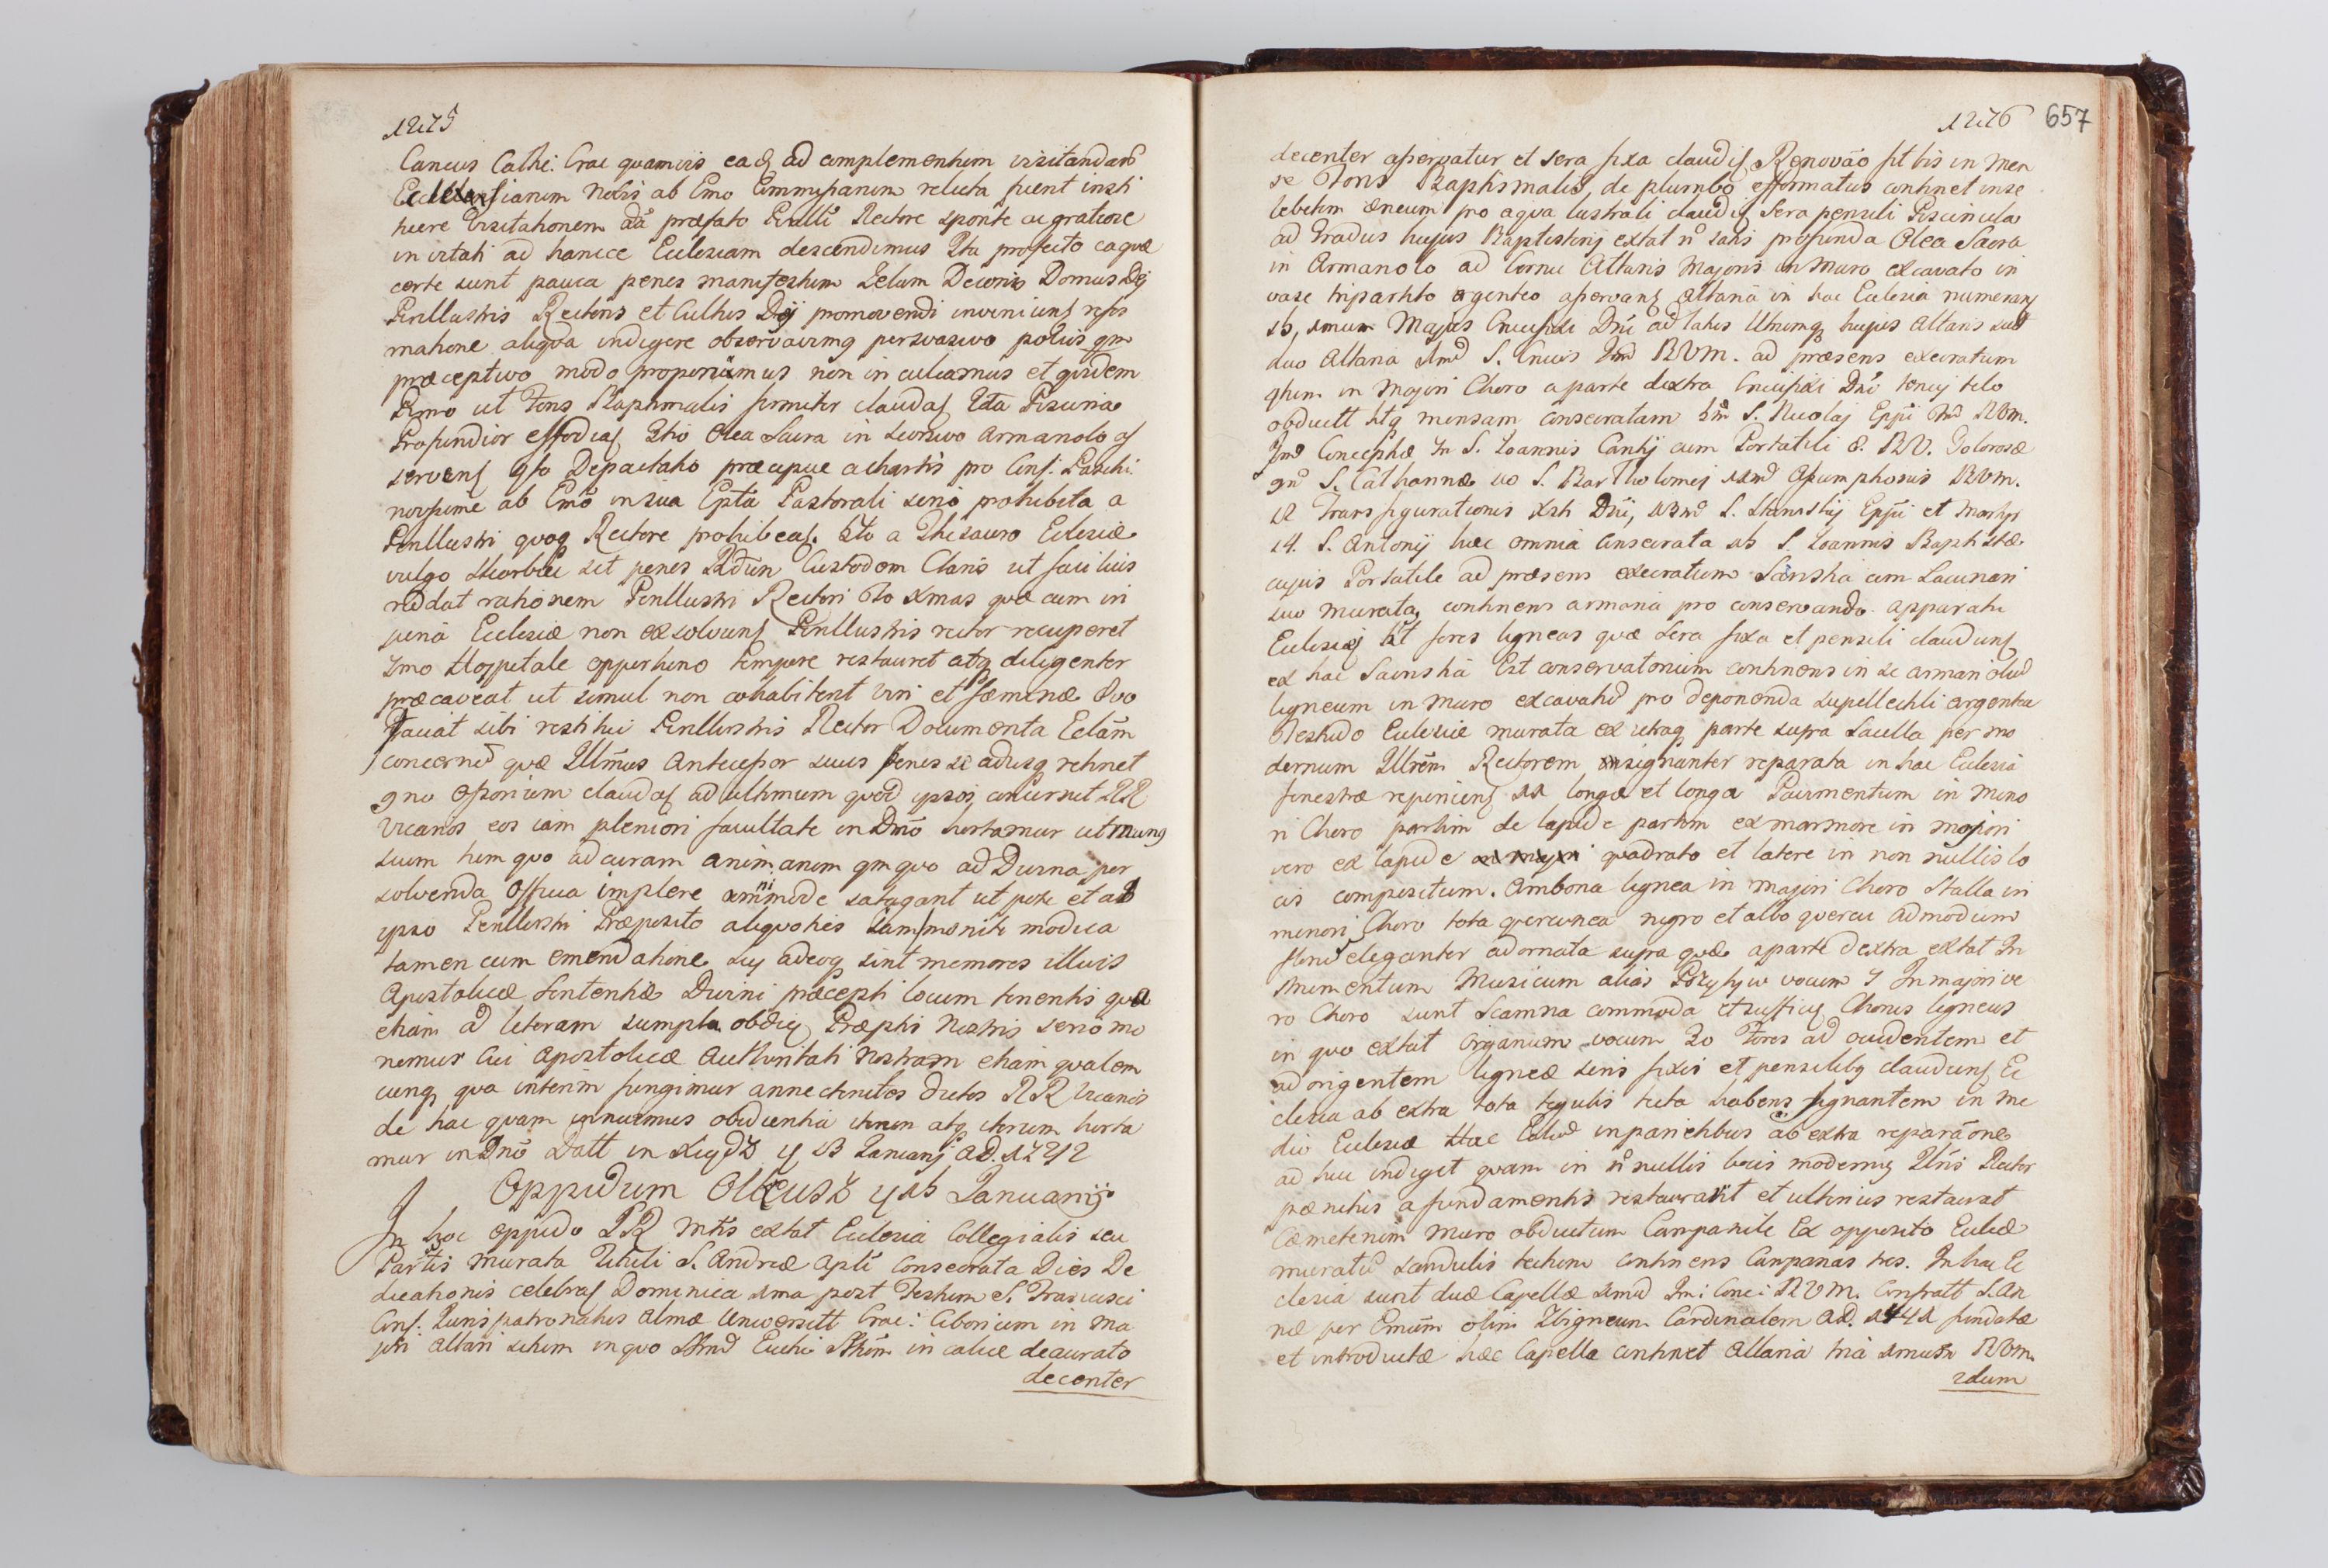 1275
Cancus Cathe: Crac quamvis ea ad complementum visitandar
Ecclesiarum Nobis ab Emo Commissarium relicta fuerit insti
tuere Visitationem aā præfato Perilli Rectore sponte ac gratiose
invitati ad hancce Ecclesiam descendimus Ita profecto eaque
certe sunt pauca penes manifestum Zelum Decoris Domus Dej
Perillustris Rectoris et Cultus Dej promovendi inveniuns refor
matione aliqva indigere observavimq persvasivo potius qm
præceptivo modo proponimus non inculcamus et qvidem
Primo ut Fons Baptismalis firmiter claudat 2da Piscina
Profundior effodiat 3tio Olea Sacra in seorsivo Armariolo as
servent 4to Depactatio præcipue a chartis pro Conf: Paschi:
novissime ab Emō in sua Epta Pastorali serio prohibita a
Perillustri quoq Rectore prohibeat. 5to a Thesauro Ecclesiæ
vulgo Skorbiec sit penes Rdūm Custodem Clavis ut facilius
reddat rationem Perillustri Rectori 6to Xmas quæ cum in
juria Ecclesiæ non exsolvunt Perillustris rector recuperet
7mo Hospitale opportuno tempore restauret atq diligenter
præcaveat ut simul non cohabitent viri et fæminæ 8vo
Faciat sibi restitui Perillustris Rector Documenta Eclām
concernē quæ Illmus Antecessor suus penes se adusq retinet
9no Ossorium claudat ad ultimum quod ipsos concernit RR
Vicarios eos iam pleniori facultate in Dno hortamur ut munq
suum tum quo ad curam animarum qm quo ad Diurna per
solvenda Officia implere omnimode satagant ut pote et ab
ipso Perillustri Præposito aliquoties iam moniti modica
tamen cum emendatione suj adeoq sint memores illius
Apostolicæ Sententiæ Divini præcepti locum tenentis quæ
etiam ad literam sumpta obdiq Præptis Nostris serio mo
nemus Cui Apostolicæ Authoritati Nostram etiam qvalem
cunq qva interim fungimur annectentes Dictos RR Vicarios
de hac quam innuimus obedientia iterum atq iterum horta
mur in Dno Datt in y 13 Januarij AD.
Oppidum Olkusz y 15 Januarij
In hoc oppido SR Mtis extat Ecclesia Collegialis seu
Partis murata Tituli S. Andreæ Apli Consecrata Dies De
dicationis celebrat Dominica 1ma post Festum S. Francisci
Conf. Juris patronatus Almæ Universitt Crac: Ciborium in ma
jori Altari situm in quo SSmū Euchi Skūm in calice deaurato
decenter

1276 657
decenter asservatur et sera fixa claudit Renovāo fit bis in Men
se Fons Baptismalis, de plumbo efformatus continet in se
lebetem æneum pro aqva lustrali claudit Sera pensili Piscinula
ad Gradus hujus Baptisterij extat ñ satis profunda Olea Sacra
in Armariolo ad Cornu Altaris Majoris in Muro excavato in
vase tripartito argenteo asservans Altaria in hac Ecclesia numerans
15, 1mum Majus Crucifixi Dni ad latus Utrumq hujus Altaris sunt
duo Altaria 2md S. Crucis 3md BVM. ad præsens execratum
4tum in Majori Choro a parte dextra Crucifixi Dni totuj telo
obductt htq mensam consecratam 5m S. Nicolaj Eppi 6md BVM.
7md Concepthæ In S. Joannis Cantij cum Portatili 8. BV. Dolorosæ
9nū S. Catharinæ 10 S. Bartholomej 11md Assumptionis BVM.
12 Transfigurationis Xsti Dni, 13m S. Stanislaj Eppi et Martyr
14. S. Antonij hæc omnia Consecrata 15 S. Joannis Baptistæ
cujus Portatile ad præsens execratum Sacristia cum Lacunari
suo murata, continens armaria pro conservando apparatu
Ecclesiæ ht fores ligneas quæ Sera fixa et pensili clauduns
ex hac Sacristia Est conservatorium continens in se armariolū
ligneum in muro excavatū pro deponenda supellectili argentea
Testudo Ecclesiæ murata ex utraq parte supra Sacella per mo
dernum Illrēm Rectorem insignanter reparata in hac Ecclesia
finestræ reperiuns 11 longæ et longa Pavimentum in Mino
ri Choro partim de lapide partim ex marmore in majori
vero ex lapide quadrato et latere in non nullis lo
cis compositum. Ambona lignea in Majori Choro Stalla in
minori Choro tota qvercinea nigro et albo qvercu admodum
florū eleganter adornata supra quæ a parte dextra extat In
strumentum Musicum alias Pozytyw vocum 7 In majori ve
ro Choro sunt Scamna commoda et sufficiens Chorus ligneus
in quo extat Organum vocum 20 Fores ad occidentem et
ad origentem ligneæ seris fixis et pensilibq clauduns Ec
clesia ab extra tota tegulis tecta habens signantem in me
dio Ecclesiæ Hæc Eclesia in parietibus ab extra reparāone
ad huc indiget quam in ñ nullis locis modernus Illris Rector
pænitus a fundamentis restauravit et ulterius restaurat
Cæmeterium Muro obductum Campanile Ex opposito Eccliæ
muratū scandulis tectum continens Campanas tres. In hac Ec
clesia sunt duæ Capellæ 1mā Im: Conc: BVM. Confratt S. An
næ per Emum olim Zbigneum Cardinalem AD. fundatæ
et introductæ hæc Capella continet Altaria tria 1mum BVM.
2dum